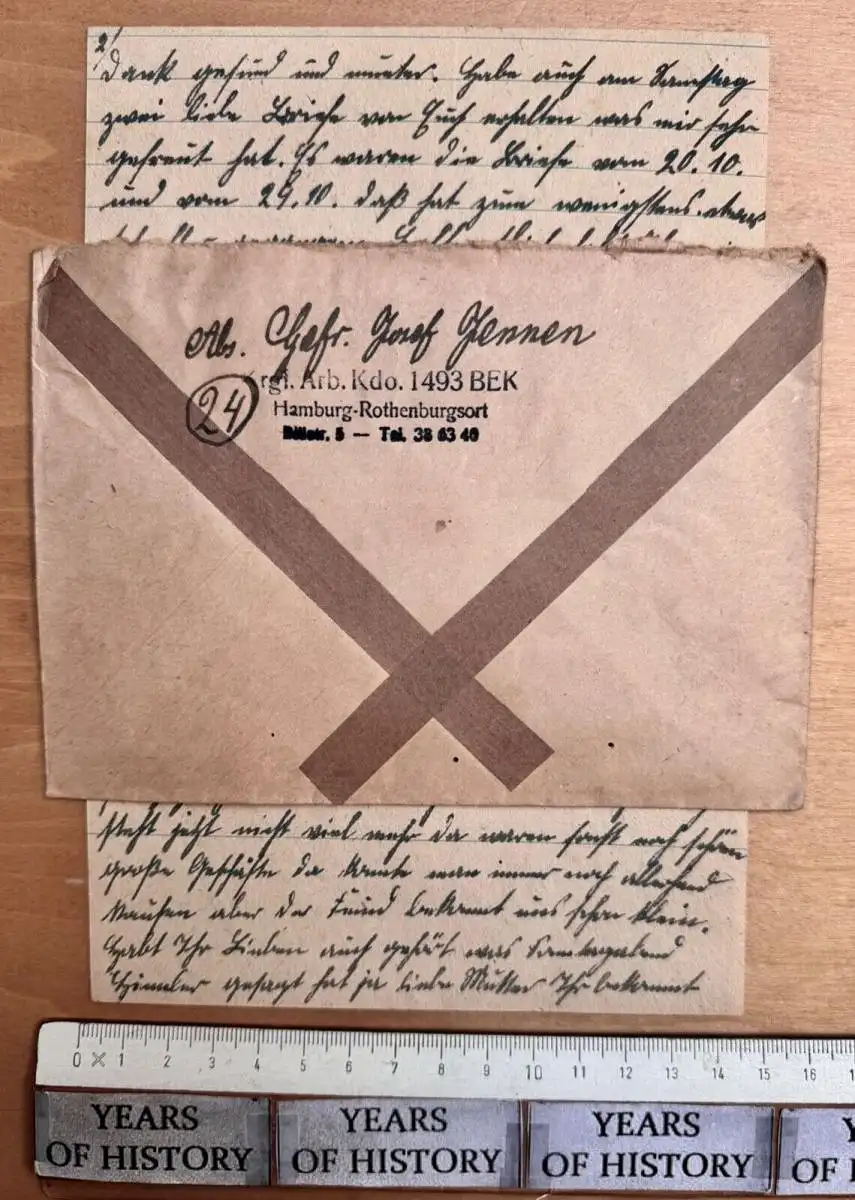 2/
Dank gesund und munter. Habe auch am Samstag
zwei liebe Briefe von Euch erhalten was mir sehr
gefreut hat. Es waren die Briefe vom 20.10.
und vom 29.10. daß hat zum wenigstens etwas
Abs. Gefr. Josef Jennen
rgf. Arb. Kdo. 1493 BEK
24
Hamburg-Rothenburgsort
5 — Tel. 38 63 40
steht jetzt nicht viel mehr da waren sonst noch schöne
große Geschäfte da konnte man immer noch allerhand
kaufen aber der Feind bekommt uns schon klein.
Habt Ihr Lieben auch gehört was Samstagabend
Himmler gesagt hat ja liebe Mutter Ihr bekommt
0 1 2 3 4 5 6 7 8 9 10 11 12 13 14 15 16
YEARS
OF HISTORY
YEARS
OF HISTORY
YEARS
OF HISTORY
Y
OF